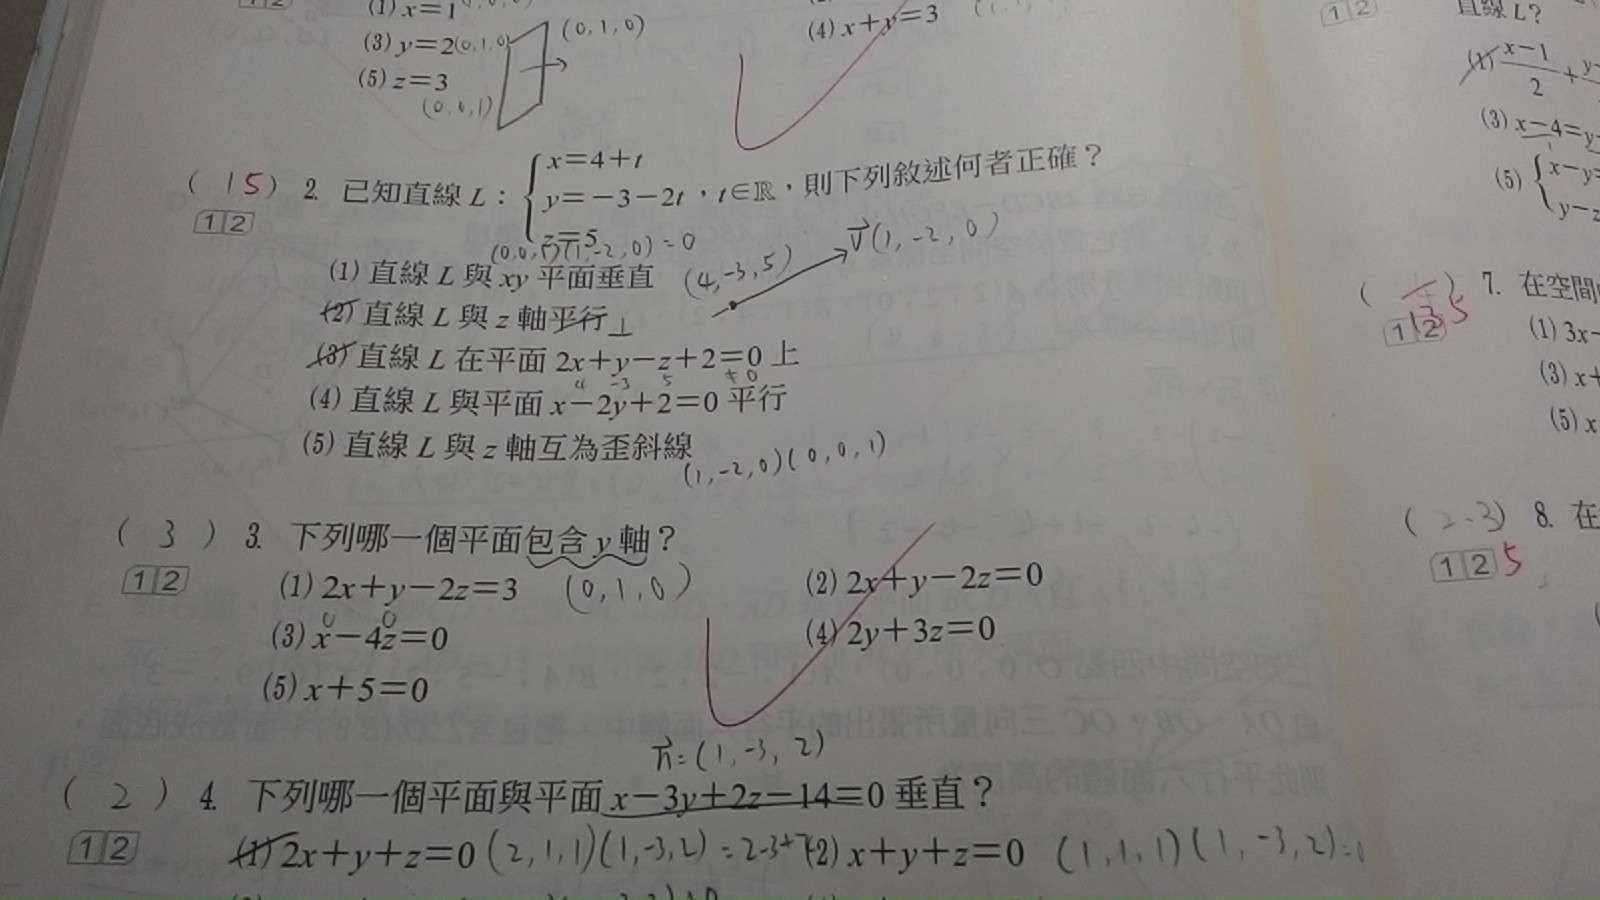 (1) x=1
(3) y=2 (0,1,0) (0,1,0)
(4) x+y=3
(5) z=3
(0,0,1)
(15) 2. 已知直線 L：{x=4+t
y=-3-2t，t∈ℝ，則下列敘述何者正確？
z=5
12
(0,0,1)(1,-2,0)=0
v(1,-2,0)
(1) 直線 L 與 xy 平面垂直 (4,-3,5)
(2) 直線 L 與 z 軸平行⊥
(3) 直線 L 在平面 2x+y-z+2=0 上
4 -3 5 ≠0
(4) 直線 L 與平面 x-2y+2=0 平行
(5) 直線 L 與 z 軸互為歪斜線
(1,-2,0)(0,0,1)
(3) 3. 下列哪一個平面包含 y 軸？
12
(1) 2x+y-2z=3 (0,1,0) (2) 2x+y-2z=0
0 0
(3) x-4z=0 (4) 2y+3z=0
(5) x+5=0
n=(1,-3,2)
(2) 4. 下列哪一個平面與平面 x-3y+2z-14=0 垂直？
12
(1) 2x+y+z=0 (2,1,1)(1,-3,2)=2-3+ (2) x+y+z=0 (1,1,1)(1,-3,2)=
12 直線 L？
(1) x-1
2 +
(3) x-4=y-
(5) {x-y=
y-z
7. 在空間
12 5
(1) 3x-
(3) x+
(5) x
(2-3) 8. 在
12 5